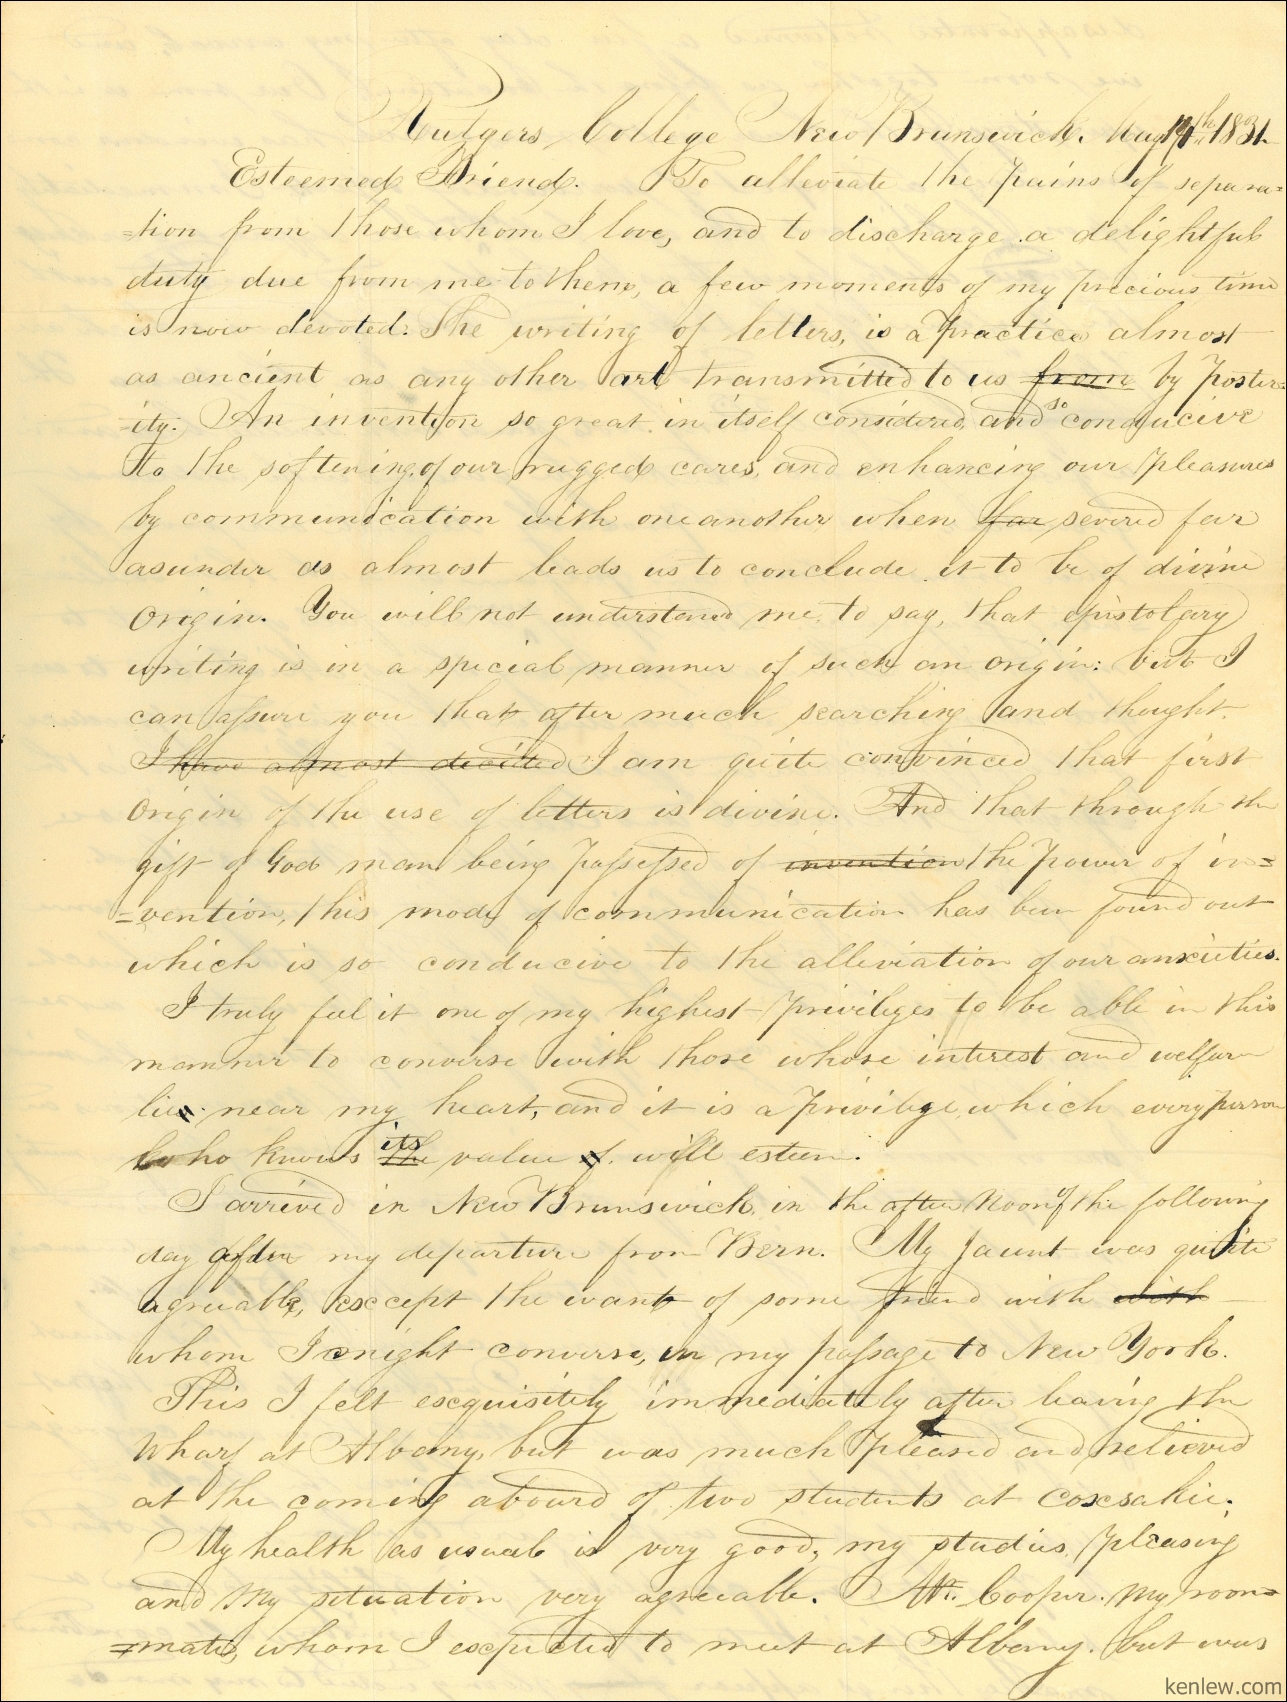 Rutgers College New Brunswick. Aug 14th 1831.
Esteemed Friend. To alleviate the pains of separa=
=tion from those whom I love, and to discharge a delightful
duty due from me to them, a few moments of my precious time
is now devoted. The writing of letters, is a practice almost
as ancient as any other art transmitted to us from by poster=
=ity. An invention so great in itself considered, and so conducive
to the softening of our rugged cares, and enhancing our pleasures
by communication with one another when far severed far
asunder as almost leads us to conclude it to be of divine
origin. You will not understand me to say, that epistolary
writing is in a special manner of such an origin: but I
can assure you that after much searching and thought.
I have almost decided I am quite convinced that first
origin of the use of letters is divine. And that through the
gift of God man being possessed of invention the power of in=
=vention, this mode of communication has been found out
which is so conducive to the alleviation of our anxieties.
I truly feel it one of my highest privileges to be able in this
manner to converse with those whose interest and welfare
lie near my heart, and it is a privilege which every person
who knows the its value of. will esteem.
I arrived in New Brunswick, in the after Noon of the following
day after my departure from Bern. My jaunt was quite
agreeable, except the want of some friend with with
whom I might converse, in my passage to New York.
This I felt exquisitely immediately after leaving the
Wharf at Albany, but was much pleased and relieved
at the coming aboard of two students at Coxsakie.
My health as usual is very good, my studies pleasing
and my situation very agreeable. Mr. Cooper. my room=
=mate, whom I expected to meet at Albany. but was
kenlew.com